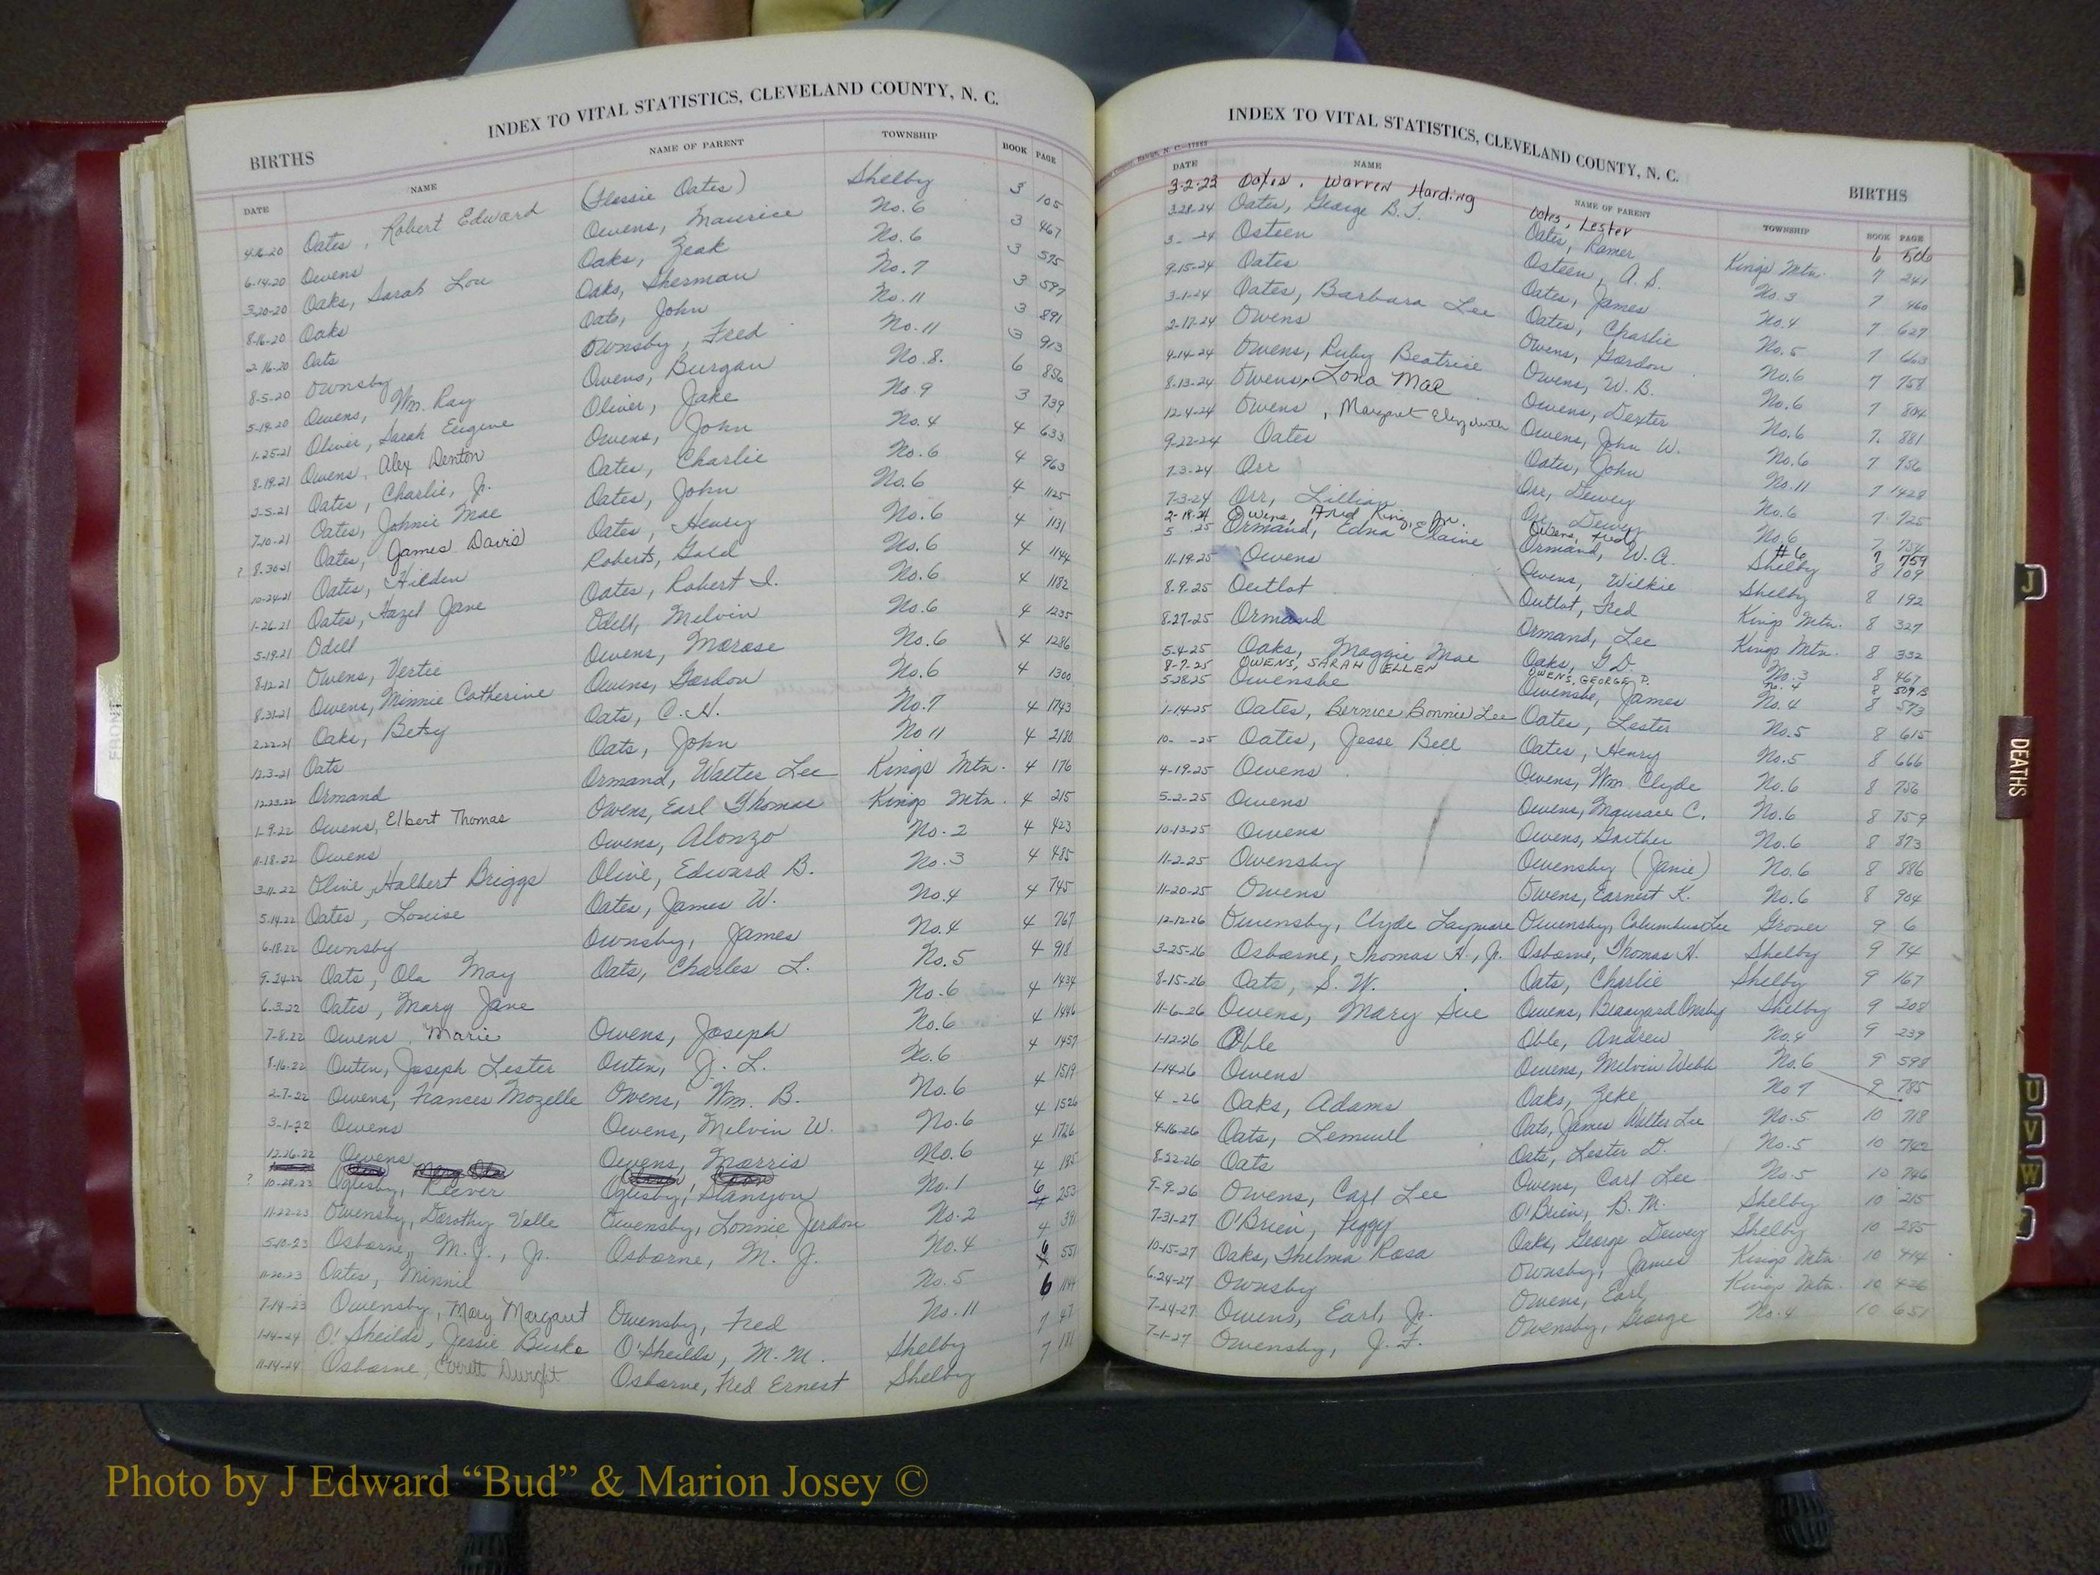 INDEX TO VITAL STATISTICS, CLEVELAND COUNTY, N. C.
BIRTHS
DATE NAME NAME OF PARENT TOWNSHIP BOOK PAGE
4-6-20 Oates, Robert Edward (Flossie Oates) Shelby 3 105
6-14-20 Owens Owens, Maurice No.6 3 467
3-20-20 Oaks, Sarah Lou Oaks, Zeak No.6 3 575
8-16-20 Oaks Oaks, Sherman No.7 3 597
2-16-20 Oats Oats, John No.11 3 891
8-5-20 Ownsby Ownsby, Fred No.11 3 913
5-19-20 Owens, Wm. Ray Owens, Burgan No.8. 6 856
1-25-21 Oliver, Sarah Eugine Oliver, Jake No.9 3 739
8-19-21 Owens, Alex Denton Owens, John No.4 4 633
2-5-21 Oates, Charlie, Jr. Oates, Charlie No.6 4 963
7-10-21 Oates, Johnie Mae Oates, John No.6 4 1125
? 8-30-21 Oates, James Davis Oates, Henry No.6 4 1131
10-24-21 Oates, Hilden Roberts, Gold No.6 4 1144
1-26-21 Oates, Hazel Jane Oates, Robert I. No.6 4 1182
5-19-21 Odell Odell, Melvin No.6 4 1235
8-12-21 Owens, Vertie Owens, Morase No.6 4 1286
8-31-21 Owens, Minnie Catherine Owens, Gordon No.6 4 1300
2-22-21 Oaks, Betsy Oats, C. H. No.7 4 1743
12-3-21 Oats Oats, John No 11 4 2180
12-23-22 Ormand Ormand, Walter Lee Kings Mtn. 4 176
1-9-22 Owens, Elbert Thomas Owens, Earl Thomas Kings Mtn. 4 215
11-18-22 Owens Owens, Alonzo No.2 4 423
3-11-22 Olive, Halbert Briggs Olive, Edward B. No.3 4 485
5-14-22 Oates, Louise Oates, James W. No.4 4 745
6-18-22 Ownsby Ownsby, James No.4 4 767
9-24-22 Oats, Ola May Oats, Charles L. No.5 4 918
6-3-22 Oates, Mary Jane No.6 4 1434
7-8-22 Owens, Marie Owens, Joseph No.6 4 1446
8-16-22 Outen, Joseph Lester Outen, J. L. No.6 4 1457
2-7-22 Owens, Frances Mozelle Owens, Wm. B. No.6 4 1519
3-1-22 Owens Owens, Melvin W. No.6 4 1526
12-26-22 Owens Owens, Morris No.6 4 1726
? 10-28-23 Oglesby, Reever Oglesby, No.1 4 185
11-22-23 Owensby, Dorothy Velle Owensby, Lonnie Jerdon No.2 6 253
5-10-23 Osborne, M. J., Jr. Osborne, M. J. No.4 4 391
11-20-23 Oates, Minnie No.5 6 551
7-14-23 Owensby, Mary Margaret Owensby, Fred No.11 6 1144
1-14-24 O'Sheilds, Jessie Burke O'Sheilds, M. M. Shelby 7 47
11-14-24 Osborne, Everett Dwight Osborne, Fred Ernest Shelby 7 181
INDEX TO VITAL STATISTICS, CLEVELAND COUNTY, N. C.
BIRTHS
DATE NAME NAME OF PARENT TOWNSHIP BOOK PAGE
3-2-23 Oates, Warren Harding Oates, Lester 6
3-28-24 Oates, George B. T. Oates, Ramer Kings Mtn. 7 241
3- -24 Osteen Osteen, A. S. No.3 7 460
9-15-24 Oates Oates, James No.4 7 627
3-1-24 Oates, Barbara Lee Oates, Charlie No.5 7 663
2-17-24 Owens Owens, Gordon No.6 7 758
4-14-24 Owens, Ruby Beatrice Owens, W. B. No.6 7 804
8-13-24 Owens, Lona Mae Owens, Dexter No.6 7. 881
12-4-24 Owens, Margaret Elizabeth Owens, John W. No.6 7 956
9-22-24 Oates Oates, John No.11 7 1428
7-3-24 Orr Orr, Dewey No.6 7 725
7-3-24 Orr, Lillian Orr, Dewey No.6 7 754
2-18-24 Owens, Fred King, Jr. Owens, Fred #6 7 759
5 .25 Ormand, Edna Elaine Ormand, W. A. Shelby 8 109
11-19-25 Owens Owens, Wilkie Shelby 8 192
8-9-25 Outlot Outlot, Fred Kings Mtn. 8 327
8-27-25 Ormand Ormand, Lee Kings Mtn. 8 332
5-4-25 Oaks, Maggie Mae Oaks, G. D. No.3 8 467
8-7-25 OWENS, SARAH ELLEN OWENS, GEORGE P. No. 4 8 509 B
5-28-25 Owensbe Owensbe, James No.4 8 573
1-14-25 Oates, Bernice Bonnie Lee Oates, Lester No.5 8 615
10- -25 Oates, Jesse Bell Oates, Henry No.5 8 666
4-19-25 Owens Owens, Wm. Clyde No.6 8 736
5-2-25 Owens Owens, Maurace C. No.6 8 759
10-13-25 Owens Owens, Gaither No.6 8 873
11-2-25 Owensby Owensby (Janie) No.6 8 886
11-20-25 Owens Owens, Earnest K. No.6 8 904
12-12-26 Owensby, Clyde Laymare Owensby, Columbus Lee Grover 9 6
3-25-26 Osborne, Thomas H., Jr. Osborne, Thomas H. Shelby 9 74
8-15-26 Oats, S. W. Oats, Charlie Shelby 9 167
11-6-26 Owens, Mary Sue Owens, Shelby 9 208
1-12-26 Oble Oble, Andrew No.4 9 239
1-14-26 Owens Owens, Melvin Webb No.6 9 598
4 -26 Oaks, Adams Oaks, Zeke No 7 9 785
4-16-26 Oats, Lemuel Oats, James Walter Lee No.5 10 718
8-22-26 Oats Oats, Lester D. No.5 10 742
9-9-26 Owens, Carl Lee Owens, Carl Lee No.5 10 746
7-31-27 O'Brien, Peggy O'Brien, B. M. Shelby 10 215
10-15-27 Oaks, Thelma Rosa Oaks, George Dewey Shelby 10 285
6-24-27 Ownsby Ownsby, James Kings Mtn. 10 414
7-24-27 Owens, Earl, Jr. Owens, Earl Kings Mtn. 10 426
7-1-27 Owensby, J. F. Owensby, George No.4 10 651
J
DEATHS
U
V
W
Photo by J Edward “Bud” & Marion Josey ©